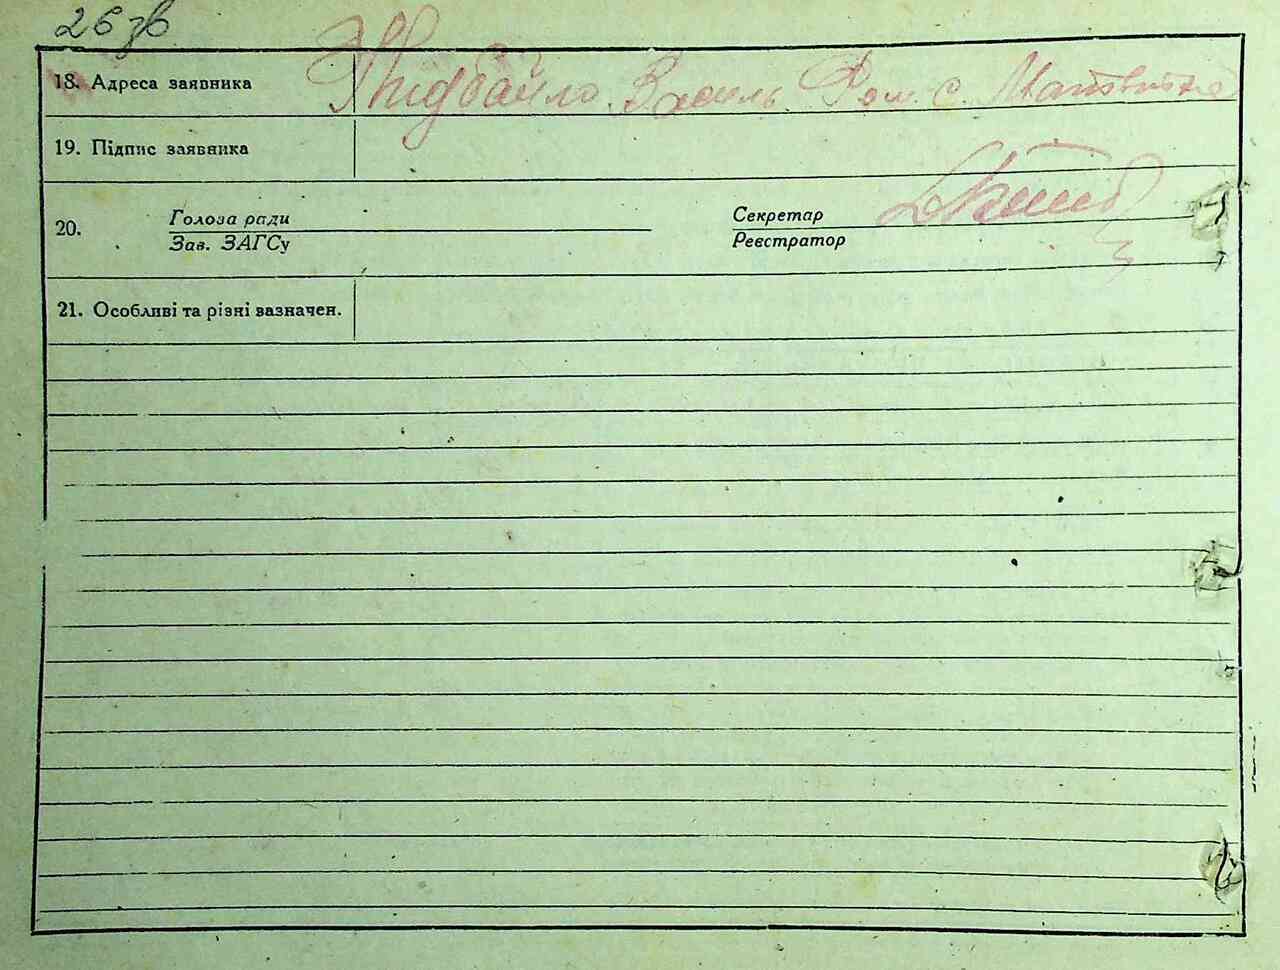 26 зв
18. Адреса заявника Підбайло Василь Ром. с. Матвіївка
19. Підпис заявника
20. Голова ради Секретар
Зав. ЗАГСу Реєстратор
21. Особливі та різні зазначен.